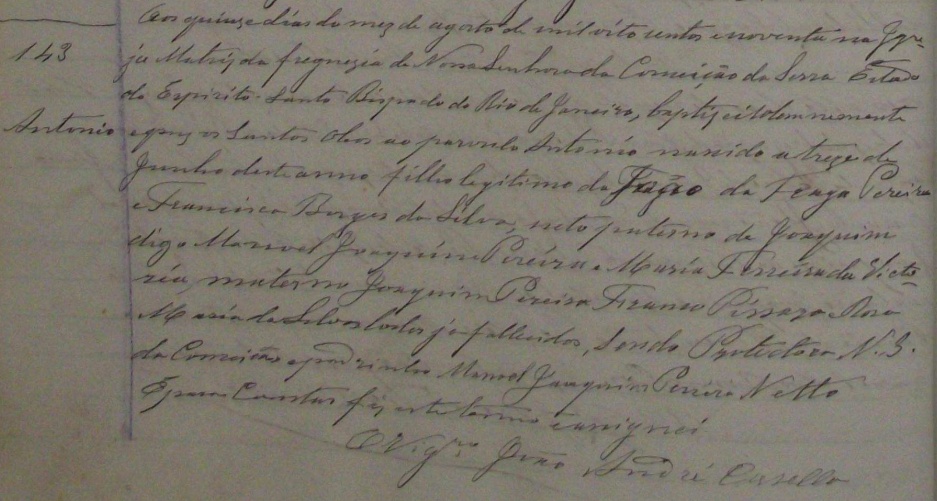 Aos quinze dias do mez de agosto de mil oito centos e noventa na Igre-
143
ja Matriz da freguezia de Nossa Senhora da Conceição da Serra Estado
do Espirito-Santo Bispado do Rio de Janeiro, baptizei solemnemente
Antonio
e puz os Santos Oleos ao parvulo Antonio nascido a treze de
Junho deste anno filho legitimo de da Fraga Pereira
e Francisca Borges da Silva, neto paterno de Joaquim
digo Manoel Joaquim Pereira e Maria Ferreira da Victo-
ria, materno Joaquim Pereira Franco Pissarra e Rosa
Maria da Silva todos ja fallecidos, Sendo Protectora N. S.
da Conceição e padrinho Manoel Joaquim Pereira Netto
E para Constar fiz este termo e assignei
O Vigrº João André Casella